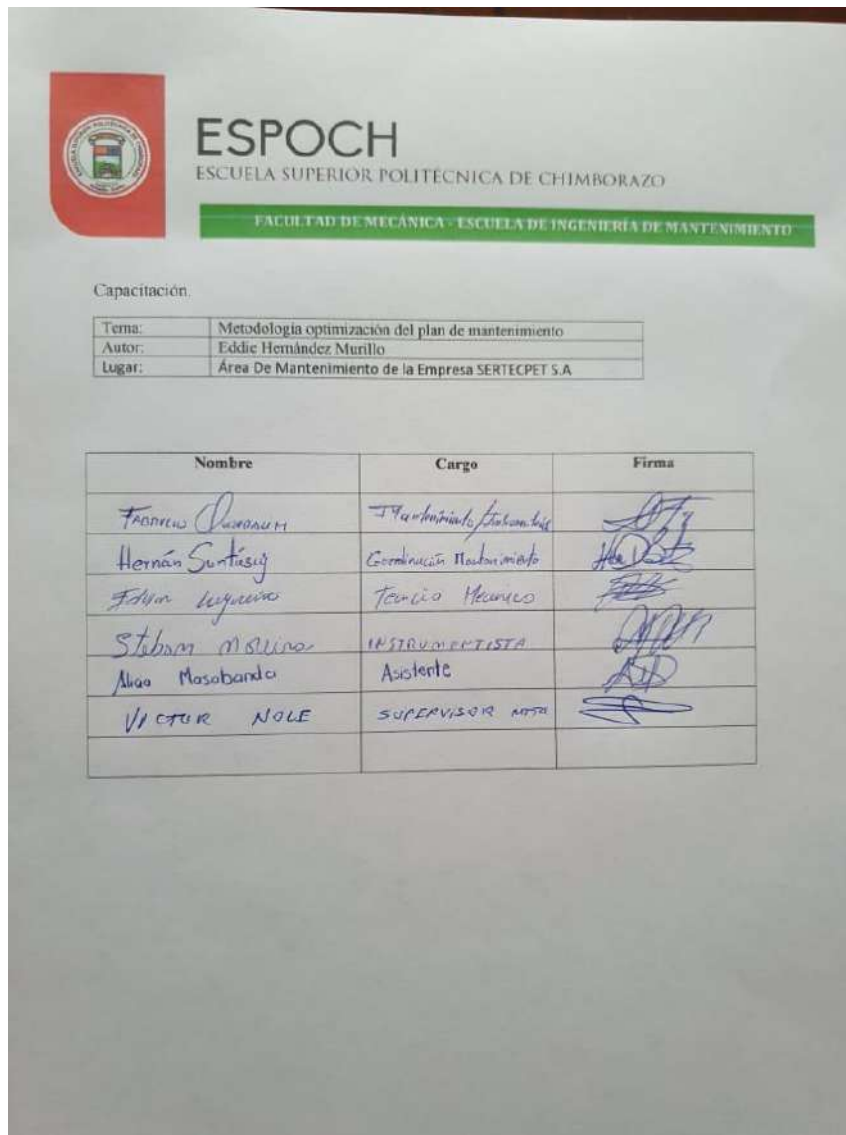 ESPOCH
ESCUELA SUPERIOR POLITÉCNICA DE CHIMBORAZO
FACULTAD DE MECÁNICA - ESCUELA DE INGENIERÍA DE MANTENIMIENTO
Capacitación.
Tema: Metodología optimización del plan de mantenimiento
Autor: Eddie Hernández Murillo
Lugar: Área De Mantenimiento de la Empresa SERTECPET S.A
Nombre Cargo Firma
Mantenimiento
Hernán Coordinación Mantenimiento
Mecánico
INSTRUMENTISTA
Masabanda Asistente
VICTOR NOLE SUPERVISOR